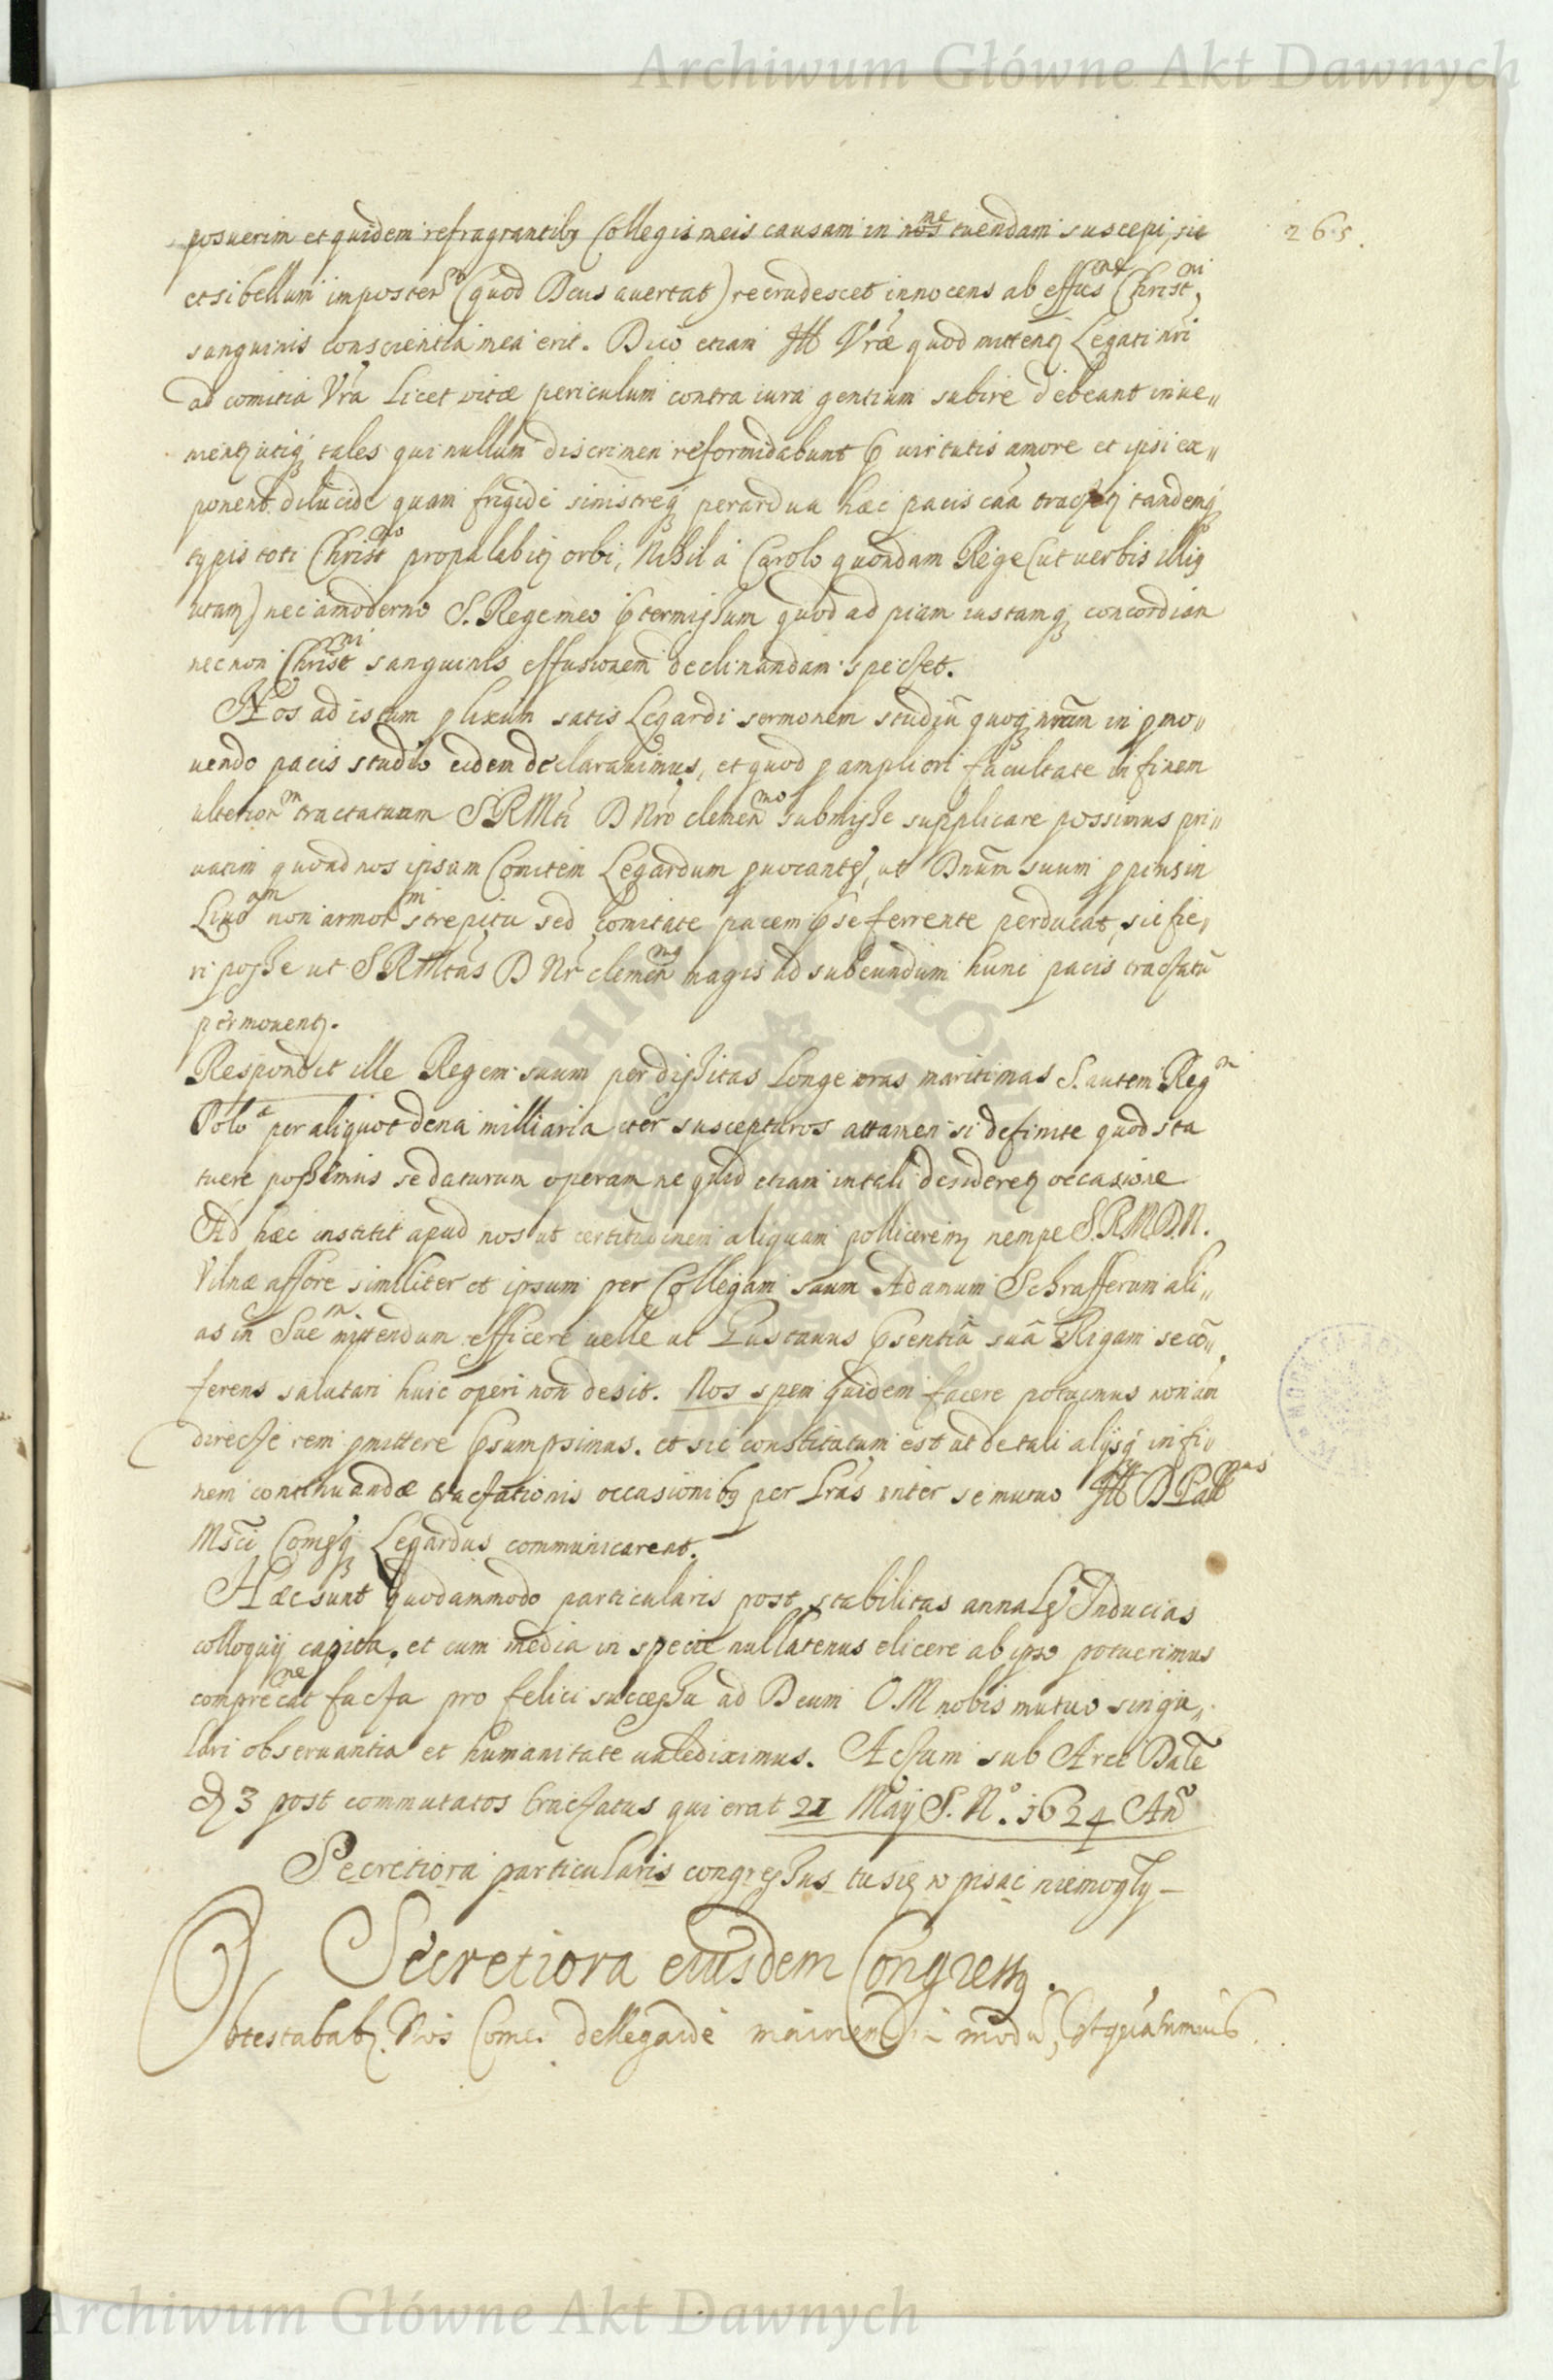 Archiwum Główne Akt Dawnych
265.
posuerim et quidem refragrantibꝫ Collegis meis causam in nos me tuendam suscepi, sic
etsi bellum in posterᵒ (quod Deus avertat) recrudescet innocens ab effusᵐᵉ Christⁿⁱ
sanguinis conscientia mea erit. Dico etiam Ill Vrae quod mittentꝫ Legati nri
ad comitia Vra Licet vitae periculum contra iura gentium subire debeant inve„
nientꝫ utiqꝫ tales qui nullum discrimen reformidabunt virtutis amore et ipsi ex„
ponent dilucide quam frigide sinistreqꝫ perardua haec pacis caa tractetꝫ tandemqꝫ
typis toti Christⁿᵒ propalabitꝫ orbi, Nihil a Carolo quondam Rege (ut verbis illiꝰ
utar) nec a moderno S. Rege meo ꝓtermissum quod ad piam iustamqꝫ concordian
nec non Christⁿⁱ sanguinis effusionem declinandam spectet.
Nos ad istum ꝓlixum satis Legardi sermonem studiū quoqꝫ nrum in ꝓmo„
vendo pacis studio eidem declaravimus, et quod ꝓ ampliori facultate in finem
ulteriorᵐ tractatuum SRMti D Nro clemenᵐᵒ submisse supplicare possimus pri„
vatim quoad nos ipsum Comitem Legardum ꝓvocantes, ut Dnum suum ꝓpius in
Livoᵃᵐ non armorᵐ strepitu sed comitate pacem ꝓse ferrente perducat, sic fie„
ri posse ut SRMtas D Nr clemenᵐꝰ magis ad subeundum hunc pacis tractatū
permoventꝫ.
Respondit ille Regem suum per dissitas longe oras maritimas S. autem Regᵐ
Poloᵉ per aliquot dena milliaria iter suscepturos attamen si definite quod sta
tuere possemus se daturum operam ne quid etiam in tali desideretꝫ occasione
Ad haec institit apud nos ut certitudinem aliquam polliceremꝫ nempe S.R.M.D.N.
Vilnae affore similiter et ipsum per Collegam suum Adamum Schrafferum ali„
as in Sueᵐ mittendum efficere velle ut Gustavus ꝓsentiâ suâ Rigam se cō„
ferens salutari huic operi non desit. Nos spem quidem facere potuimus non am
directe rem ꝓmittere ꝓsumpsimus. et sic constitutum est ut de tali alijsqꝫ in fi„
nem continuandae tractationis occasionibꝫ per Lras inter se mutuo Ill D Palⁿᵘˢ
Msci Comesqꝫ Legardus communicarent.
Haec sunt quodammodo particularis post stabilitas annales Inducias
colloquij capita, et cum media in specie nullatenus elicere ab ipso potuerimus
comprecatⁿᵉ facta pro felici successu ad Deum O.M nobis mutuo singu„
lari observantia et humanitate valediximus. Actum sub Arce Dale
3 post commutatos tractatus qui erat 21 Maij S. Nᵒ. 1624 Anᵒ
Secretiora particularis congressus tu się wpisac niemogły —
Secretiora eiusdem Congressꝰ.
Obtestabatꝫ Nos Comes dellegardi in modū, Ut quasumus
Archiwum Główne Akt Dawnych